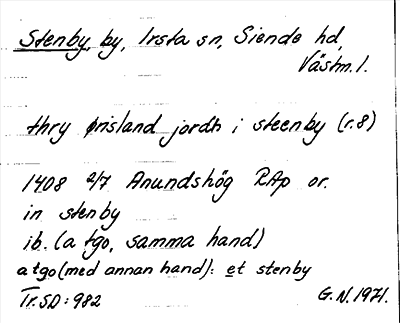 Stenby, by, Irsta sn, Siende hd,
Västm. l.
thry ørisland jordh i steenby (r. 8)
1408 2/7 Anundshög RAp or.
in stenby
ib. (a tgo, samma hand)
a tgo (med annan hand): et stenby
Tr. SD: 982
G. N. 1971.